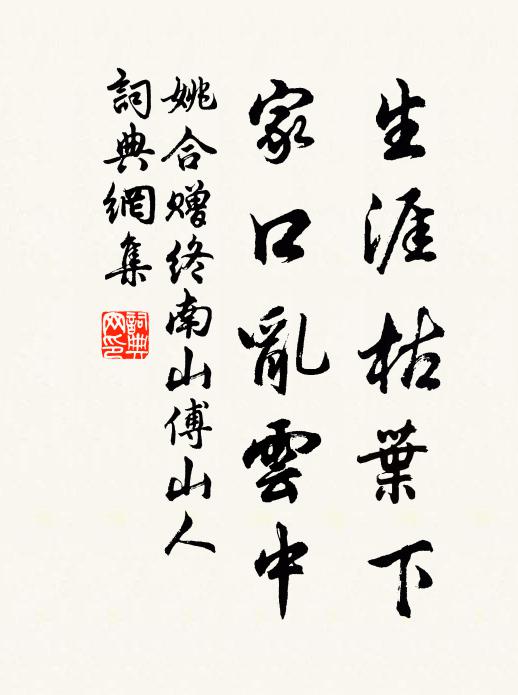 生涯枯葉下
家口亂雲中
姚合贈終南山傅山人
詞典網集
詞典
网印